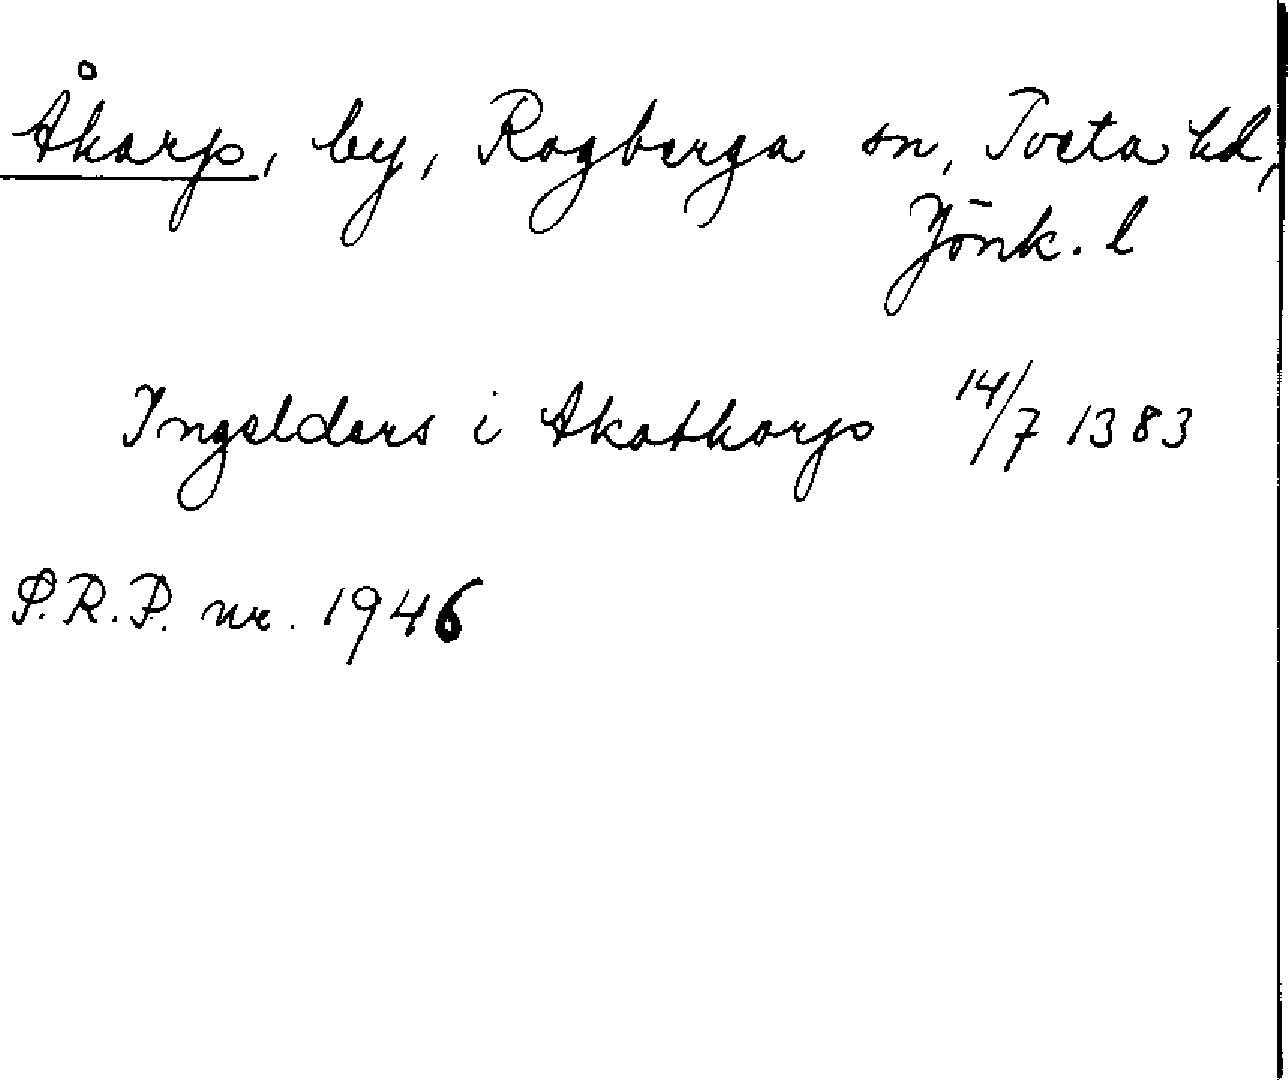 Åkarp, by, Rogberga sn, Tveta hd,
Jönk. l
Ingelders i Akathorp 14/7 1383
S.R.P. nr. 1946